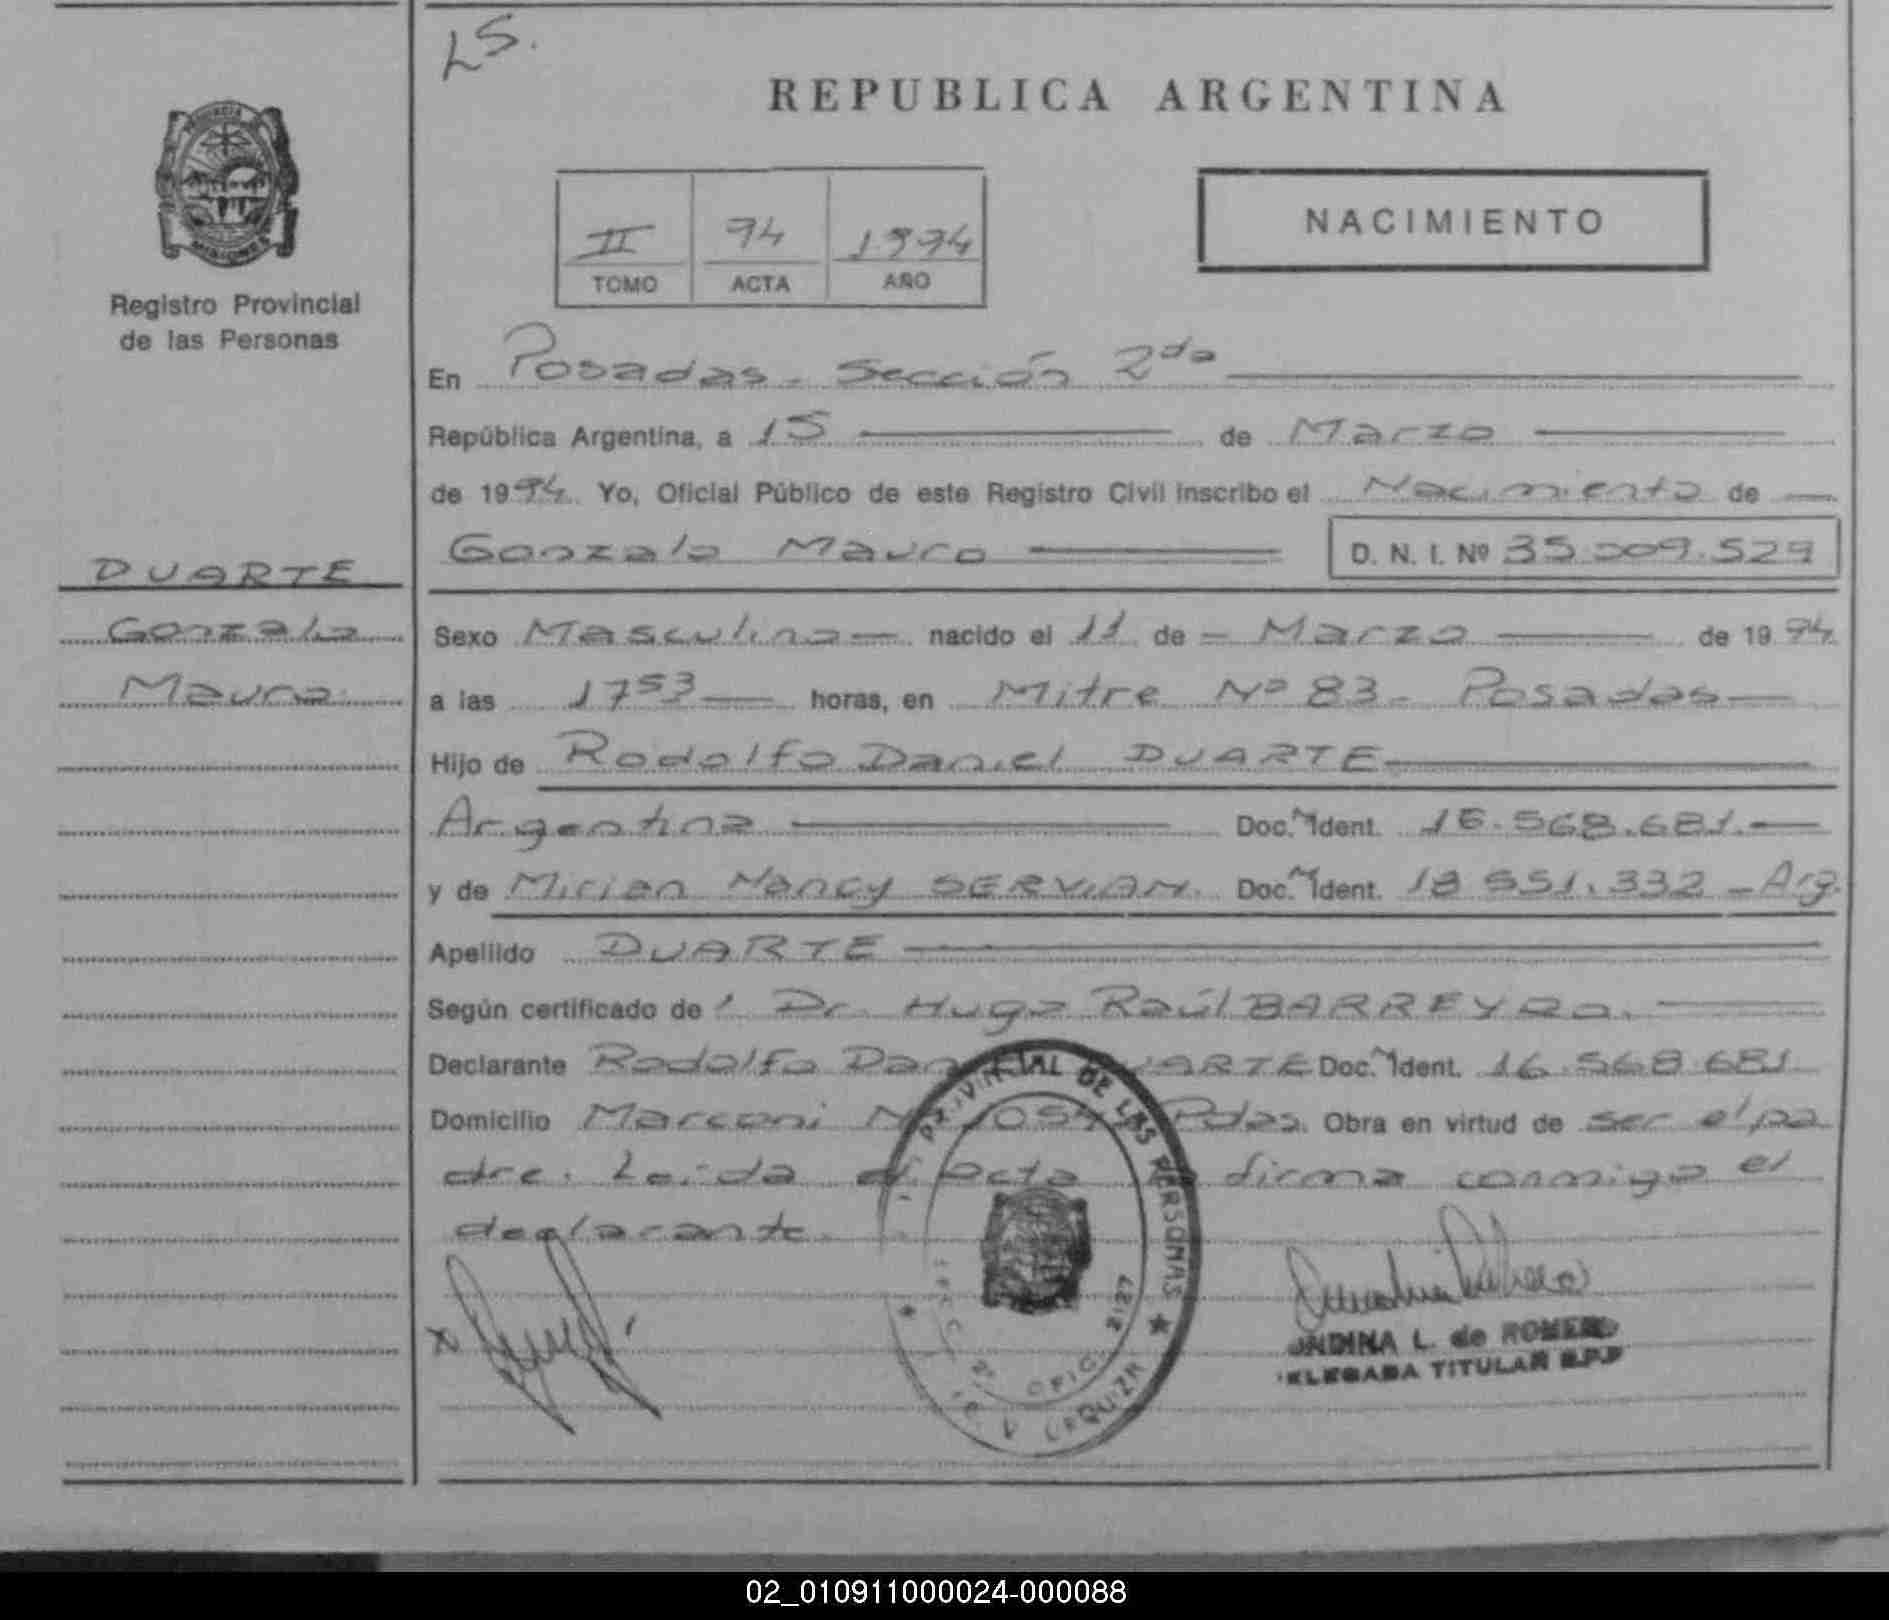 LS.
REPUBLICA ARGENTINA
II 94 1994
TOMO ACTA AÑO
NACIMIENTO
Registro Provincial
de las Personas
En Posadas - Sección 2da
República Argentina, a 15 de Marzo
de 1994. Yo, Oficial Público de este Registro Civil inscribo el Nacimiento de
Gonzalo Mauro D. N. I. Nº 35.009.529
DUARTE
Gonzalo
Mauro
Sexo Masculino nacido el 11 de Marzo de 1994.
a las 17 53 horas, en Mitre Nº 83 - Posadas
Hijo de Rodolfo Daniel DUARTE
Argentina Doc. Ident. 16.568.681.
y de Mirian Nancy SERVIAN. Doc. Ident. 18 551.332 - Arg.
Apellido DUARTE
Según certificado de Dr. Hugo Raúl BARREYRO.
Declarante Rodolfo DUARTE Doc. Ident. 16.568.681
Domicilio Marconi Pdas. Obra en virtud de ser el pa
dre. Leida el acta firma conmigo el
declarante.
PROVINCIAL DE LAS PERSONAS
SECC. 2ª OFIC. 2127
ONDINA L. de ROMERO
DELEGADA TITULAR R.P.P
02_010911000024-000088